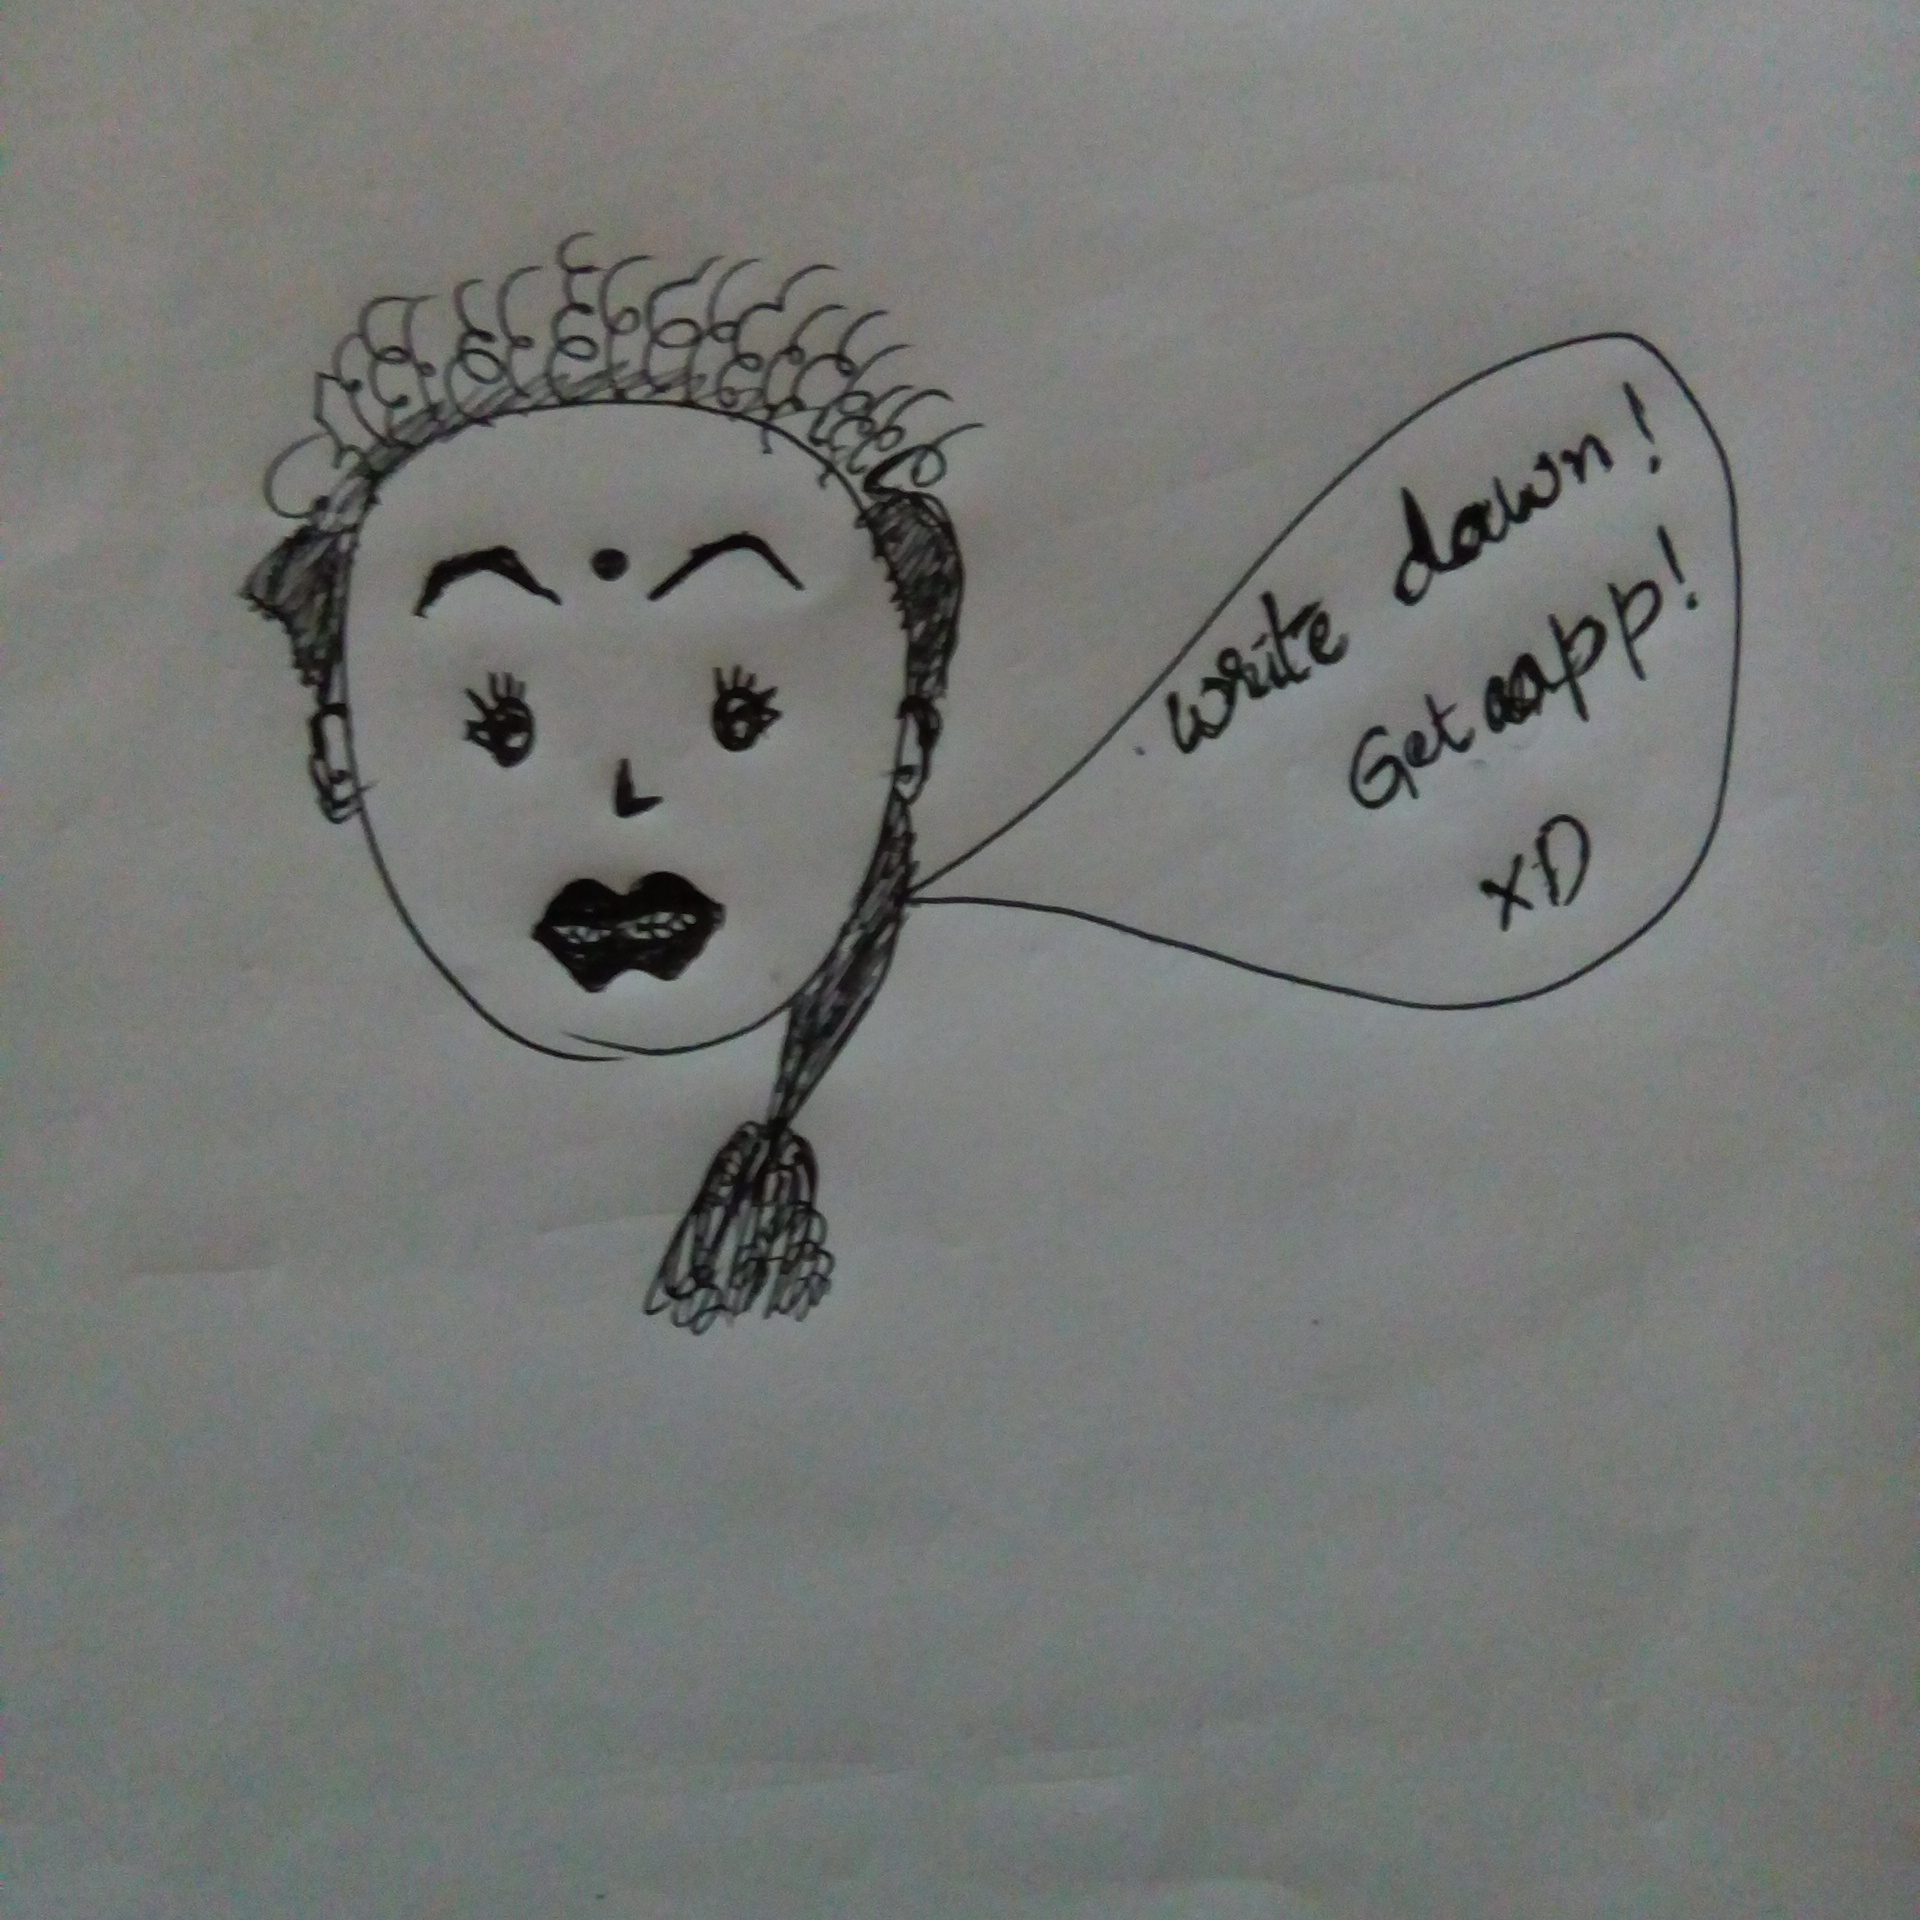 write down!
Get aapp!
XD